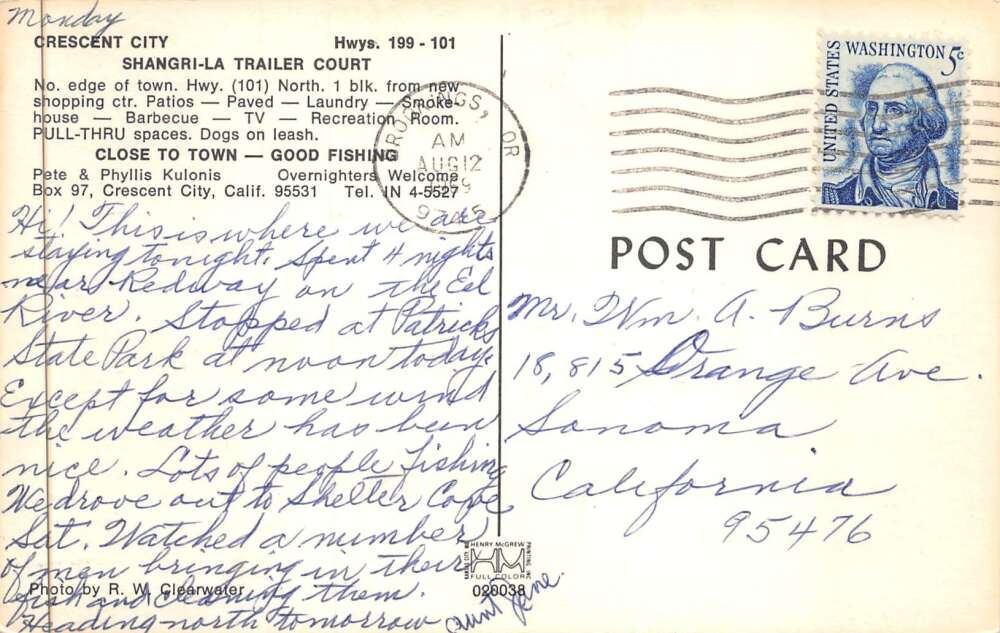 Monday
CRESCENT CITY Hwys. 199 - 101
SHANGRI-LA TRAILER COURT
No. edge of town. Hwy. (101) North. 1 blk. from new
shopping ctr. Patios — Paved — Laundry — Smoke-
house — Barbecue — TV — Recreation Room.
PULL-THRU spaces. Dogs on leash.
CLOSE TO TOWN — GOOD FISHING
Pete & Phyllis Kulonis Overnighters Welcome
Box 97, Crescent City, Calif. 95531 Tel. IN 4-5527
Hi! This is where we are
staying tonight. Spent 4 nights
near Redway on the Eel
River. Stopped at Patricks
State Park at noon today.
Except for some wind
the weather has been
nice. Lots of people fishing
We drove out to Shelter Cove
Sat. Watched a number
of men bringing in their
fish and cleaning them.
Heading north tomorrow
Aunt Irene
Photo by R. W. Clearwater
HENRY McGREW
PRINTING, INC.
KANSAS CITY, MO.
HM
FULL COLOR
026038
BROOKINGS, OR
AM
AUG 12
UNITED STATES
WASHINGTON 5c
POST CARD
Mr. Wm. A. Burns
18,815 Orange Ave.
Sonoma
California
95476